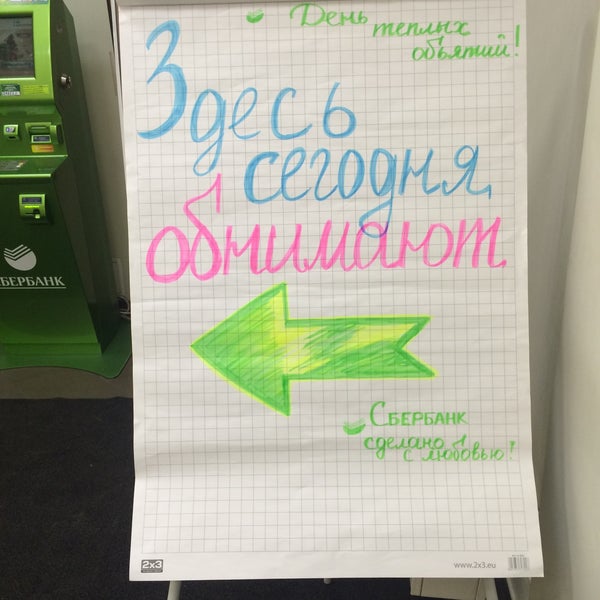 День
теплых
объятий!
Здесь
сегодня
обнимают
СБЕРБАНК
СБЕРБАНК
сделано
с любовью!
2x3
www.2x3.eu